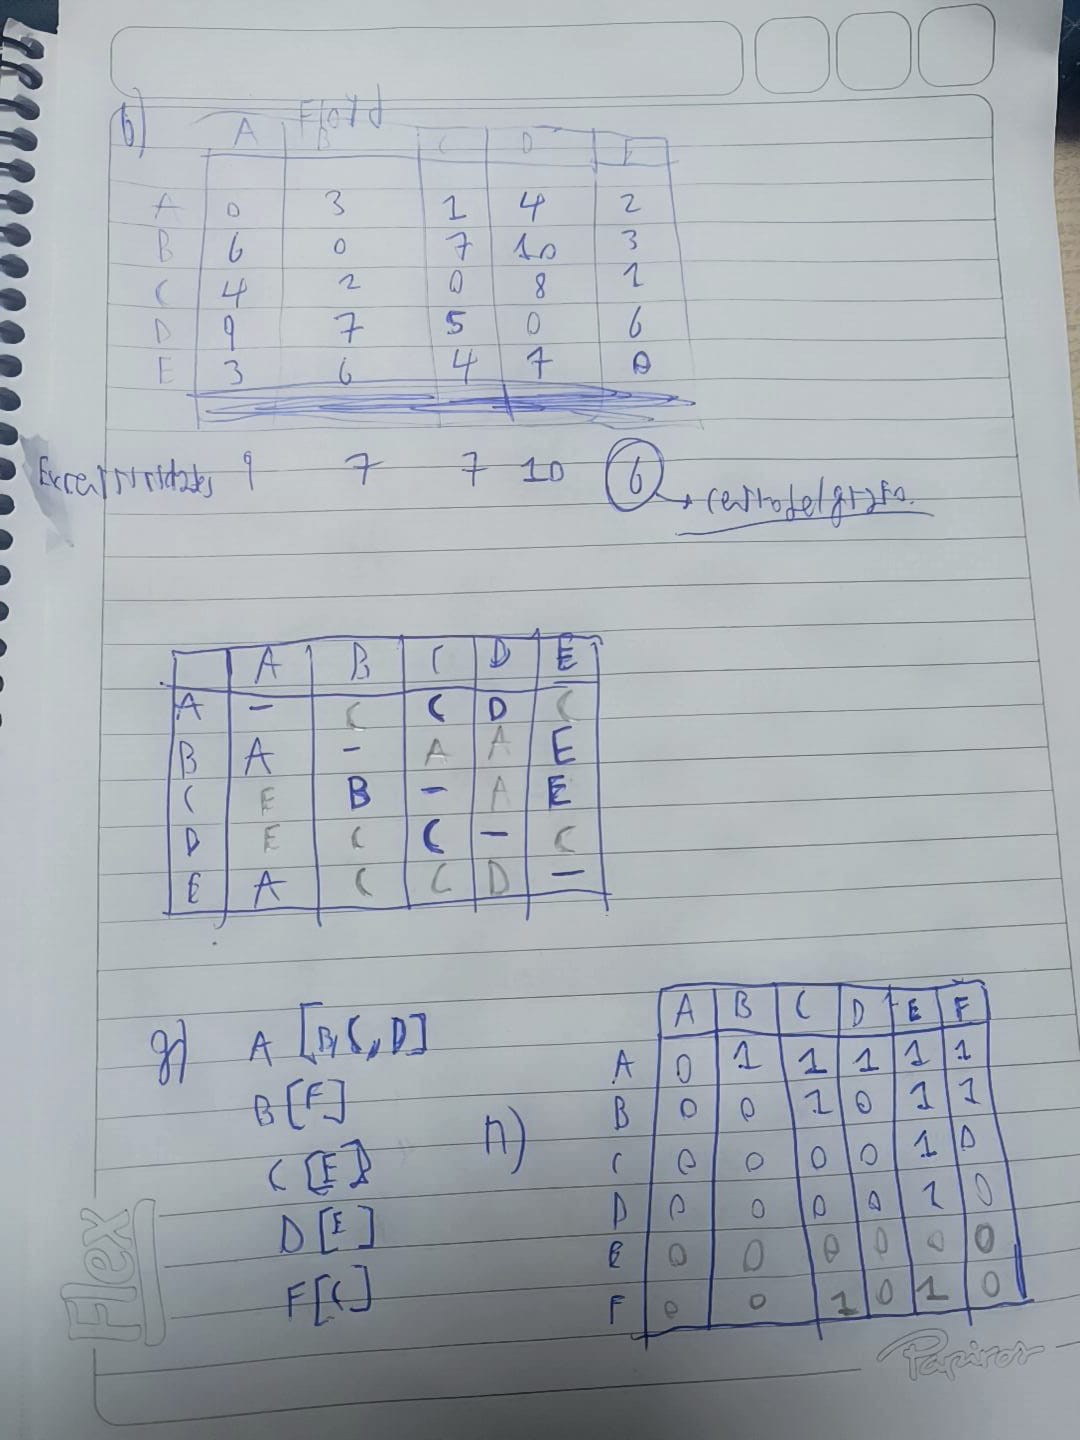 b) Floyd
A B C D E
A 0 3 1 4 2
B 6 0 7 10 3
C 4 2 0 8 1
D 9 7 5 0 6
E 3 6 4 7 0
9 7 7 10 6 → centro del grafo.
A B C D E
A - C C D C
B A - A A E
C E B - A E
D E C C - C
E A C C D -
g) A [B, C, D]
B [F]
C [E]
D [E]
F [C]
h)
A B C D E F
A 0 1 1 1 1 1
B 0 0 1 0 1 1
C 0 0 0 0 1 0
D 0 0 0 0 1 0
E 0 0 0 0 0 0
F 0 0 1 0 1 0
Flex
Papiros